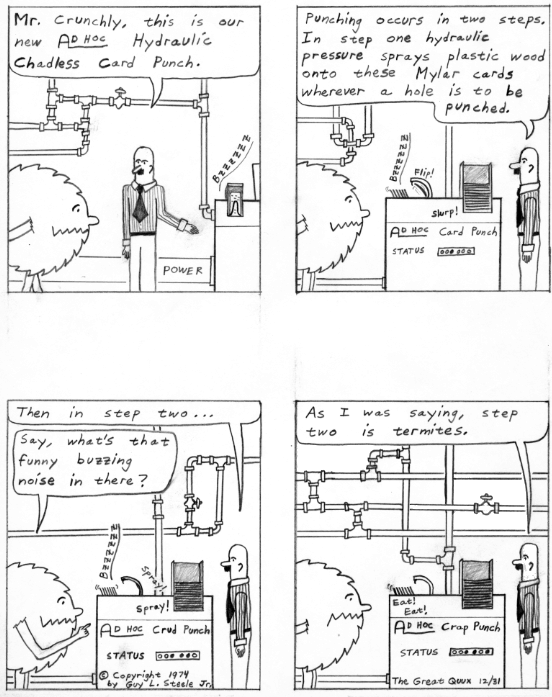 Mr. Crunchly, this is our
new AD HOC Hydraulic
Chadless Card Punch.
BZZZZZZZ
POWER
Punching occurs in two steps.
In step one hydraulic
pressure sprays plastic wood
onto these Mylar cards
wherever a hole is to be
punched.
BZZZZZZ
Flip!
slurp!
AD HOC Card Punch
STATUS
Then in step two...
Say, what's that
funny buzzing
noise in there?
BZZZZZZZ
Spray!
Spray!
AD HOC Crud Punch
STATUS
© Copyright 1974
by Guy L. Steele Jr.
As I was saying, step
two is termites.
Eat!
Eat!
AD HOC Crap Punch
STATUS
The Great Quux 12/31